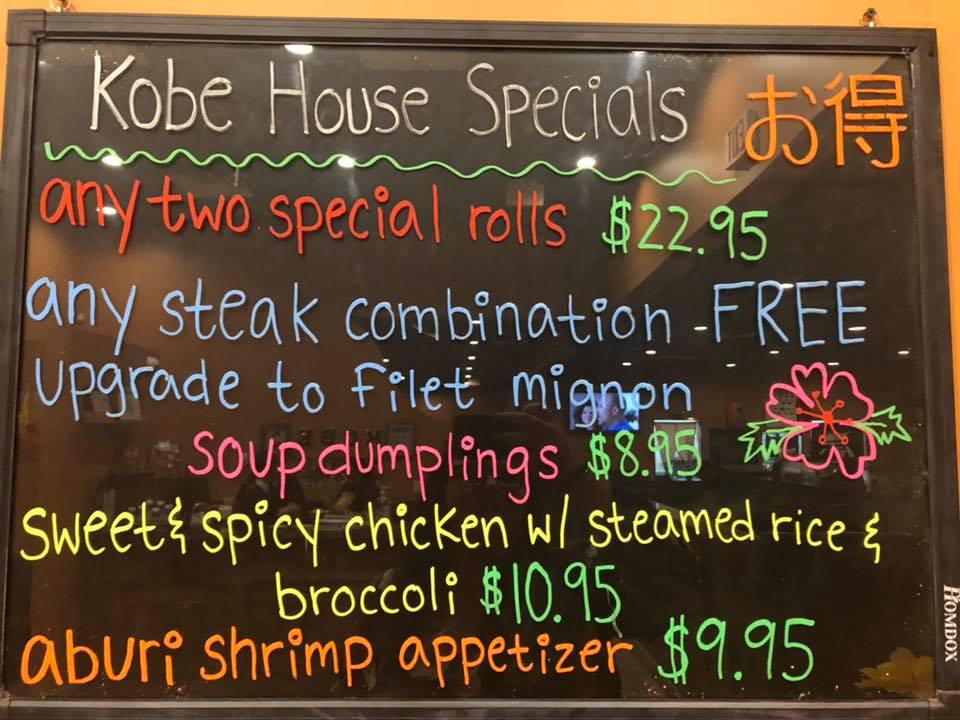 Kobe House Specials お得
any two special rolls $22.95
any steak combination FREE
upgrade to filet mignon
soup dumplings $8.95
sweet & spicy chicken w/ steamed rice &
broccoli $10.95
aburi shrimp appetizer $9.95
HOMDOX